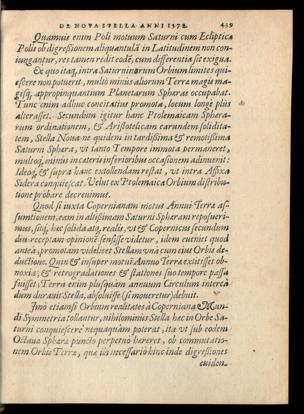 DE NOVA STELLA ANNI 1572. 439
Quamuis enim Poli motuum Saturni cum Eclipticæ
Polis ob digressionem aliquantulā in Latitudinem non con-
iungantur, res tamen redit eodē, cum differentia sit exigua.
Ex quo itaq; intra Saturninorum Orbium limites qui-
escere non potuerit, multò minus aliorum Terræ magis ma-
gisq; appropinquantium Planetarum Sphæras occupabat.
Tunc enim adhuc concitatius promota, locum longè pluus
alterasset. Secundum igitur hanc Ptolemaicam Sphæra-
rum ordinationem, & Aristotelicam earundem solidita-
tem, Stella Nova ne quidem in tardißima & remotißima
Saturni Sphæra, vt tanto Tempore immota permaneret,
multoq; minus in cæteris inferioribus occasionem adinuenit:
Ideoq; & supra hanc extollendam restat, vt intra Affixa
Sidera conquiescat. Velut ex Ptolemaica Orbium distribu-
tione probare decreuimus.
Quod si iuxta Copernianam motus Annui Terræ as-
sumtionem, eam in altißimam Saturni Sphæram reposueri-
mus, sitq; hæc solida atq; realis, vt & Copernicus secundum
diu receptam opinionē sensisse videtur, idem eueniet quod
anteà; promotam videlicet Stellam vnà cum eius Orbis de-
ductione. Quin & insuper motui Annuo Terræ extitisset ob-
noxia; & retrogradationes & stationes suo tempore passa
fuisset; Terra enim plusquàm annuum Circulum intereà
dum durauit Stella, absoluisse (si moueretur) debuit.
Imò etiamsi Orbium realitates à Coperniana Mun-
di Symmetria tollantur, nihilominus Stella hæc in Orbe Sa-
turni conquiescere nequaquàm poterat, ita vt sub eodem
Octauæ Sphæræ puncto perpetuò hæreret, ob commutatio-
nem Orbis Terræ, quæ illi necessariò hinc inde digressiones
euiden-